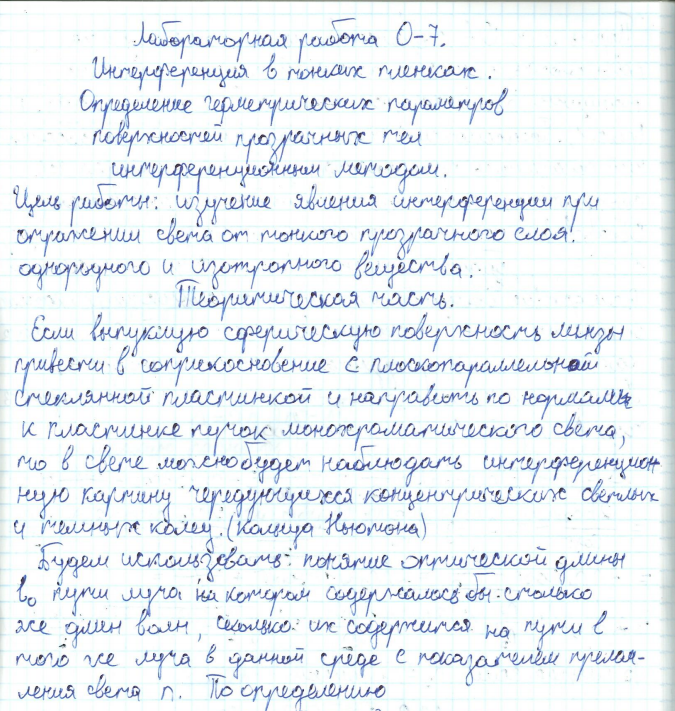 Лабораторная работа О-7.
Интерференция в тонких пленках.
Определение геометрических параметров
поверхностей прозрачных тел
интерференционным методом.
Цель работы: изучение явления интерференции при
отражении света от тонкого прозрачного слоя.
однородного и изотропного вещества.
Теоритическая часть.
Если выпуклую сферическую поверхность линзы
привести в соприкосновение с плоскопараллельной
стеклянной пластинкой и направить по нормали
к пластинке пучок монохроматического света,
то в свете можно будет наблюдать интерференцион-
ную картину чередующихся концентрических светлых
и темных колец. (Кольца Ньютона)
Будем использовать понятие оптической длины
l₀ пути луча на котором содержалось бы столько
же длин волн, сколько их содержится на пути l
того же луча в данной среде с показателем прелом-
ления света n. По определению